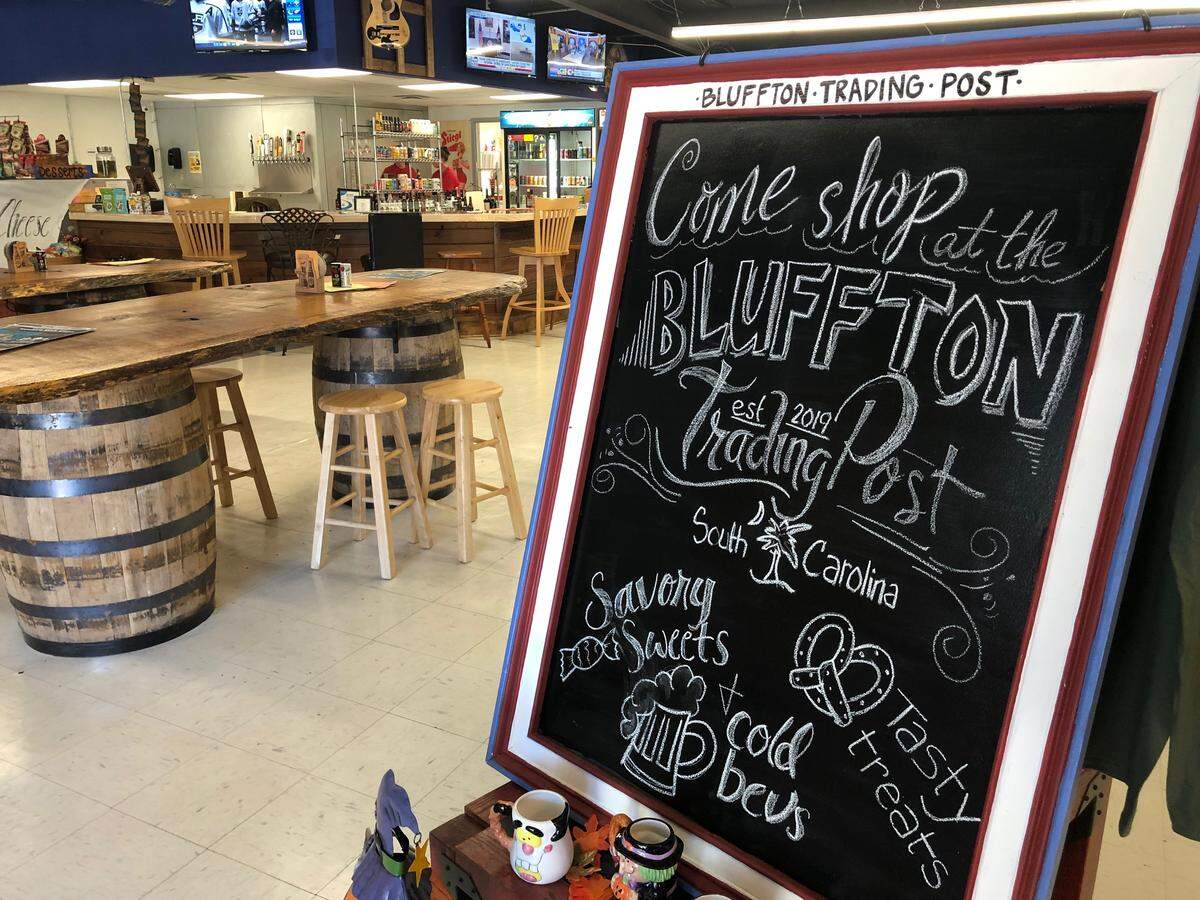 ·BLUFFTON·TRADING·POST·
Come shop at the
BLUFFTON
est 2019
Trading Post
South Carolina
Savory
Sweets
+ cold
bevs
Tasty
treats
Desserts
Cheese
Stiegl